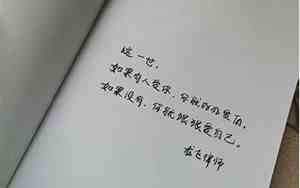 这一世，
如果有人爱你，你就好好爱他，
如果没有，你就好好爱自己。
律师